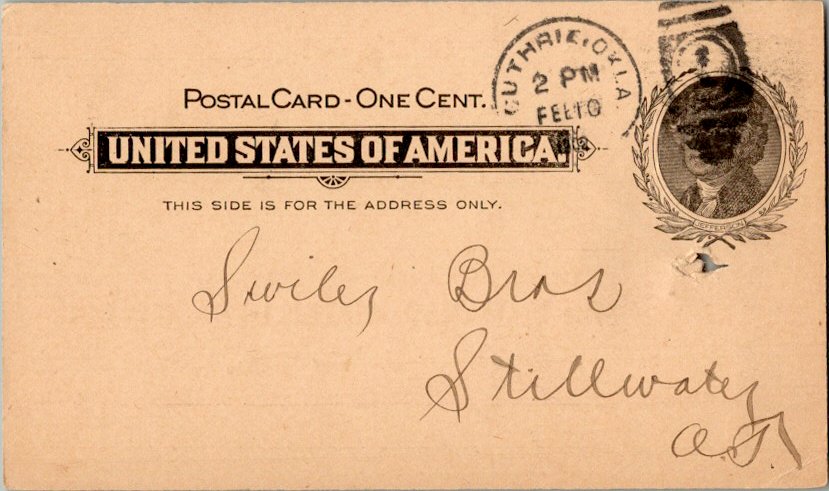 GUTHRIE, OKLA.
2 PM
FEB 10
POSTAL CARD - ONE CENT.
UNITED STATES OF AMERICA.
THIS SIDE IS FOR THE ADDRESS ONLY.
JEFFERSON
Swiler Bros
Stillwater
O.T.